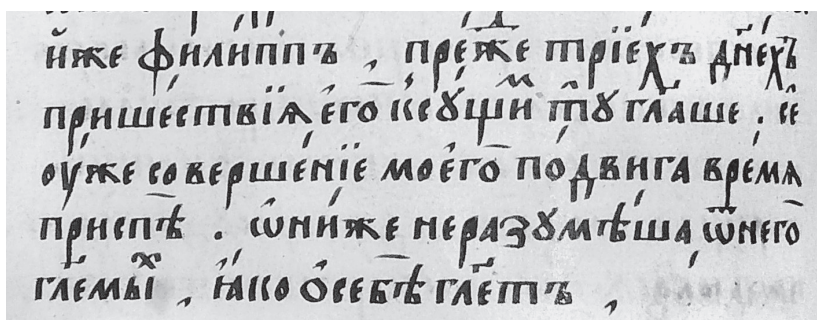 и҆́же фили́ппъ , пре́же трїе́хъ дн҃е́хъ
прише́ствїѧ є҆го̀ ксꙋ́щиⷨ тꙋ̀ гл҃аше . се́
оу҆́же соверше́нїе моего̀ по́двига вре́мѧ
приспѣ̀ . ѡ҆ни́же неразꙋмѣ́ша ѿнего̀
гл҃емыⷯ , ꙗ҆́ко ѻ҆себѣ̀ гл҃етъ ,